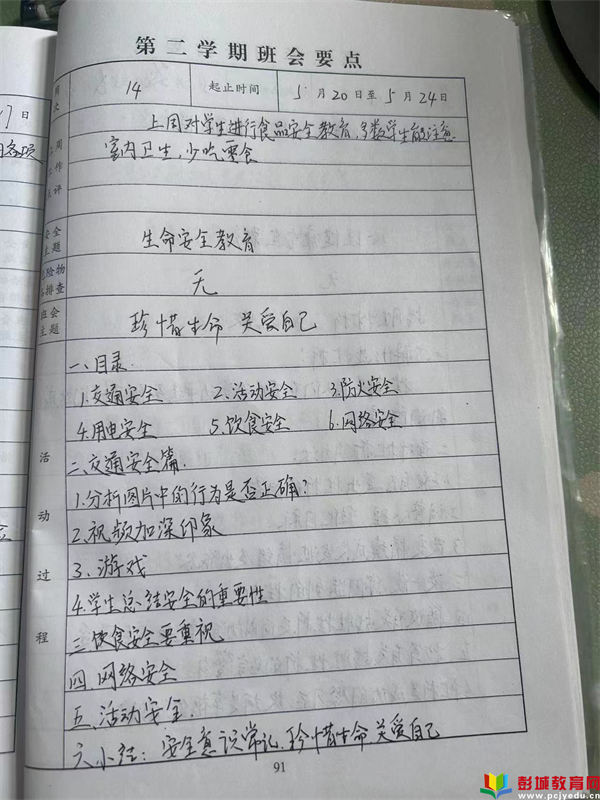 第二学期班会要点
周次 14 起止时间 5月20日至5月24日
上周对学生进行食品安全教育,多数学生能注意
室内卫生,少吃零食
上周工作点评
安全主题 生命安全教育
危险物品排查 无
班会主题 珍惜生命 关爱自己
一、目录.
1.交通安全 2.活动安全 3.防火安全
4.用电安全 5.饮食安全 6.网络安全
二、交通安全篇.
1.分析图片中的行为是否正确?
2.视频加深印象
3、游戏
4.学生总结安全的重要性
三.饮食安全要重视
四.网络安全
五.活动安全.
六.小结:安全意识常记,珍惜生命,关爱自己
活动过程
91
17日
彭城教育网
www.pcjyedu.cn